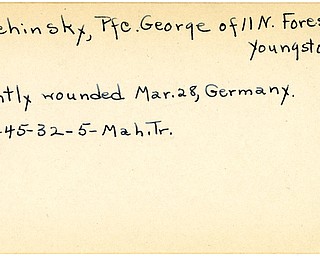 ehinsky, Pfc. George of 11 N. Fores
Youngsto
ntly wounded Mar. 28, Germany.
-45-32-5-Mah. Tr.